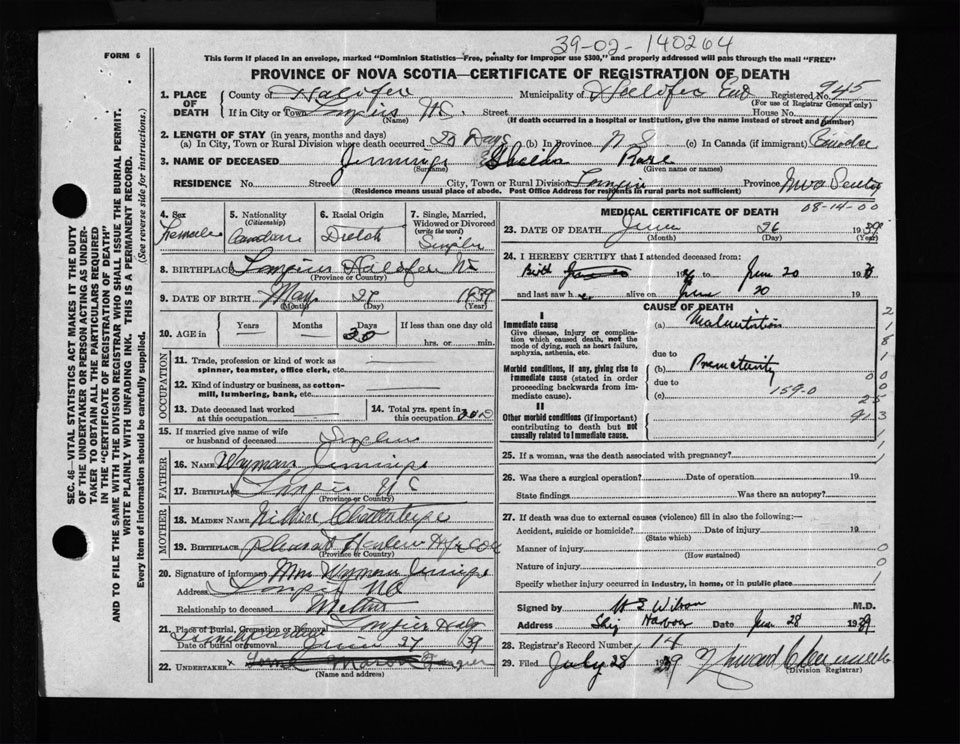 39-02-140264
FORM 6
This form if placed in an envelope, marked "Dominion Statistics—Free, penalty for improper use $300," and properly addressed will pass through the mail "FREE"
PROVINCE OF NOVA SCOTIA—CERTIFICATE OF REGISTRATION OF DEATH
1. PLACE OF DEATH County of Halifax Municipality of Halifax East Registered No. 945
(For use of Registrar General only)
If in City or Town N.S. Street House No.
(Name) (If death occurred in a hospital or institution, give the name instead of street and number)
2. LENGTH OF STAY (in years, months and days)
(a) In City, Town or Rural Division where death occurred Days (b) In Province N S (c) In Canada (if immigrant)
3. NAME OF DECEASED Jennings Rose
(Surname) (Given name or names)
RESIDENCE No. Street City, Town or Rural Division Province Nova Scotia
(Residence means usual place of abode. Post Office Address for residents in rural parts not sufficient)
08-14-00
4. Sex Female
5. Nationality (Citizenship) Canadian
6. Racial Origin
7. Single, Married, Widowed or Divorced (write the word) Single
8. BIRTHPLACE Halifax
(Province or Country)
9. DATE OF BIRTH May 27 1939
(Month) (Day) (Year)
10. AGE in Years Months Days 30 If less than one day old
hrs. or min.
OCCUPATION
11. Trade, profession or kind of work as spinner, teamster, office clerk, etc.
12. Kind of industry or business, as cotton-mill, lumbering, bank, etc.
13. Date deceased last worked at this occupation
14. Total yrs. spent in this occupation
15. If married give name of wife or husband of deceased
FATHER
16. NAME Wyman Jennings
17. BIRTHPLACE
(Province or Country)
MOTHER
18. MAIDEN NAME
19. BIRTHPLACE Pleasant
(Province or Country)
20. Signature of informant Mrs Wyman Jennings
Address
Relationship to deceased Mother
21. Place of Burial, Cremation or Removal
Date of burial or removal June 27 39
22. UNDERTAKER
(Name and address)
MEDICAL CERTIFICATE OF DEATH
23. DATE OF DEATH June 26 1939
(Month) (Day) (Year)
24. I HEREBY CERTIFY that I attended deceased from:
Birth 19 to June 20 19
and last saw h alive on June 20 19
CAUSE OF DEATH
I
Immediate cause
Give disease, injury or complication which caused death, not the mode of dying, such as heart failure, asphyxia, asthenia, etc.
(a) Malnutrition
due to
Morbid conditions, if any, giving rise to immediate cause (stated in order proceeding backwards from immediate cause).
(b) Prematurity
due to
(c) 159-0
II
Other morbid conditions (if important) contributing to death but not causally related to immediate cause.
25. If a woman, was the death associated with pregnancy?
26. Was there a surgical operation? Date of operation 19
State findings Was there an autopsy?
27. If death was due to external causes (violence) fill in also the following:—
Accident, suicide or homicide? Date of injury 19
(State which)
Manner of injury
(How sustained)
Nature of injury
Specify whether injury occurred in industry, in home, or in public place
Signed by Wilson M.D.
Address Ship Harbour Date Jun 28 1939
28. Registrar's Record Number 14
29. Filed July 28 1939
(Division Registrar)
SEC. 46—VITAL STATISTICS ACT MAKES IT THE DUTY
OF THE UNDERTAKER OR PERSON ACTING AS UNDERTAKER
TO OBTAIN ALL THE PARTICULARS REQUIRED
IN THE "CERTIFICATE OF REGISTRATION OF DEATH"
AND TO FILE THE SAME WITH THE DIVISION REGISTRAR WHO SHALL ISSUE THE BURIAL PERMIT.
WRITE PLAINLY WITH UNFADING INK. THIS IS A PERMANENT RECORD.
Every item of information should be carefully supplied. (See reverse side for instructions.)